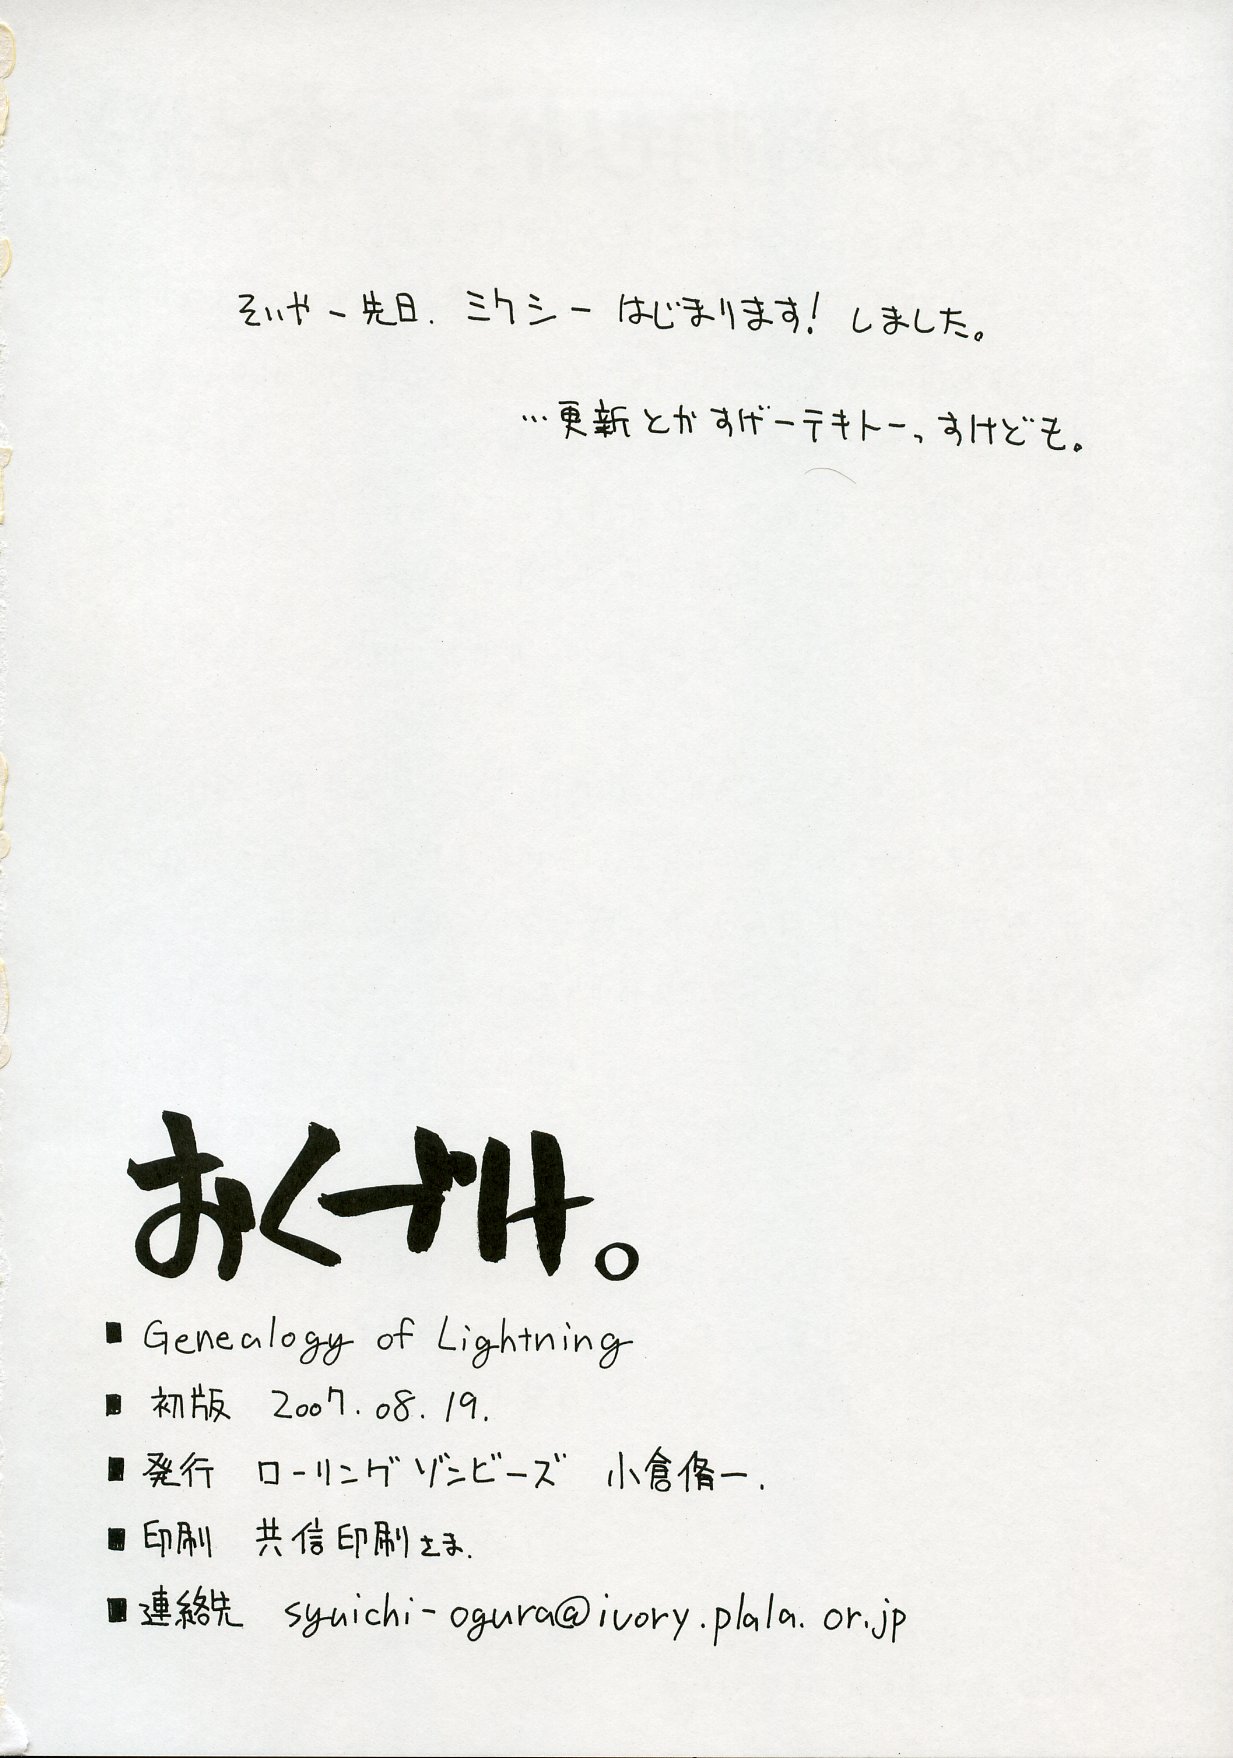 そいやー先日、ミクシーはじまります! しました。
…更新とかすげーテキトーっすけども。
おくづけ。
■ Genealogy of Lightning
■ 初版 2007.08.19.
■ 発行 ローリングゾンビーズ 小倉脩一.
■ 印刷 共信印刷さま.
■ 連絡先 syuichi-ogura@ivory.plala.or.jp